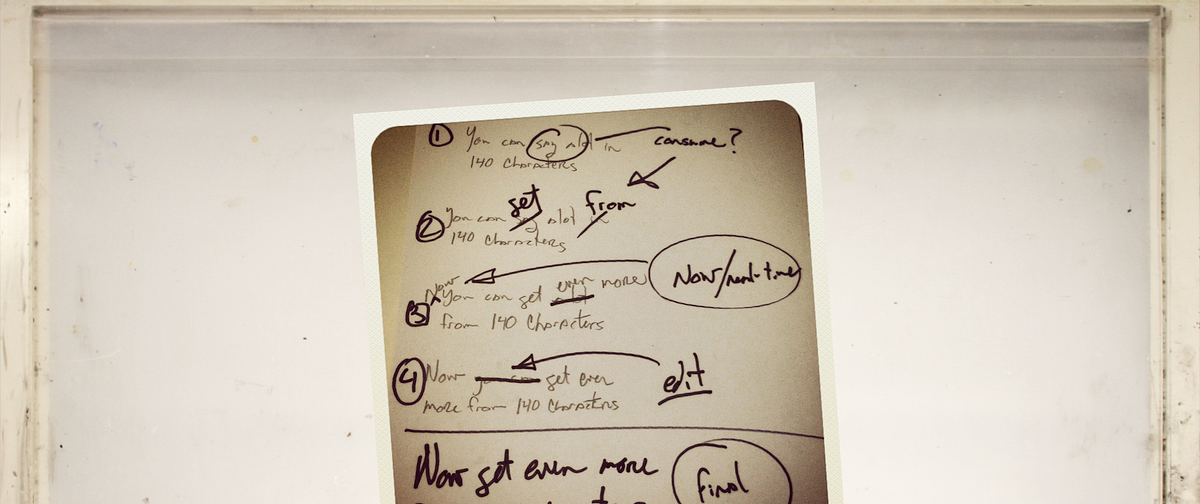 ① You can say alot in consume?
140 Characters
get from
② You can say alot in
140 Characters
Now even Now/real-time
③ You can get alot more
from 140 Characters
④ Now you can get even edit
more from 140 Characters
Now get even more final